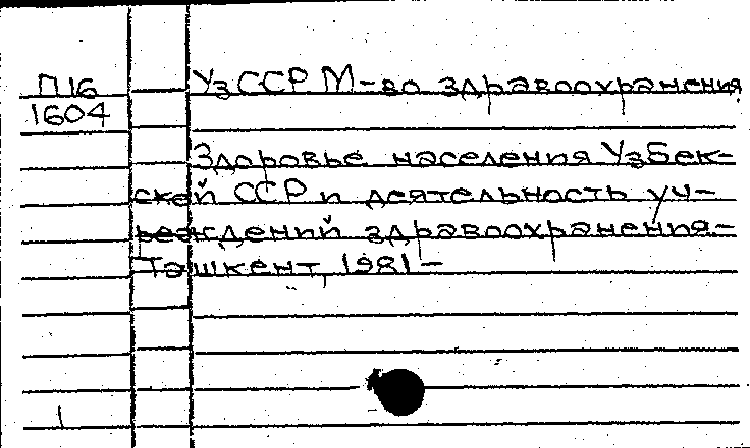 П16 УзССР М-во здравоохранения
1604
Здоровье населения Узбек-
ской ССР и деятельность уч-
реждений здравоохранения.-
Ташкент, 1981-